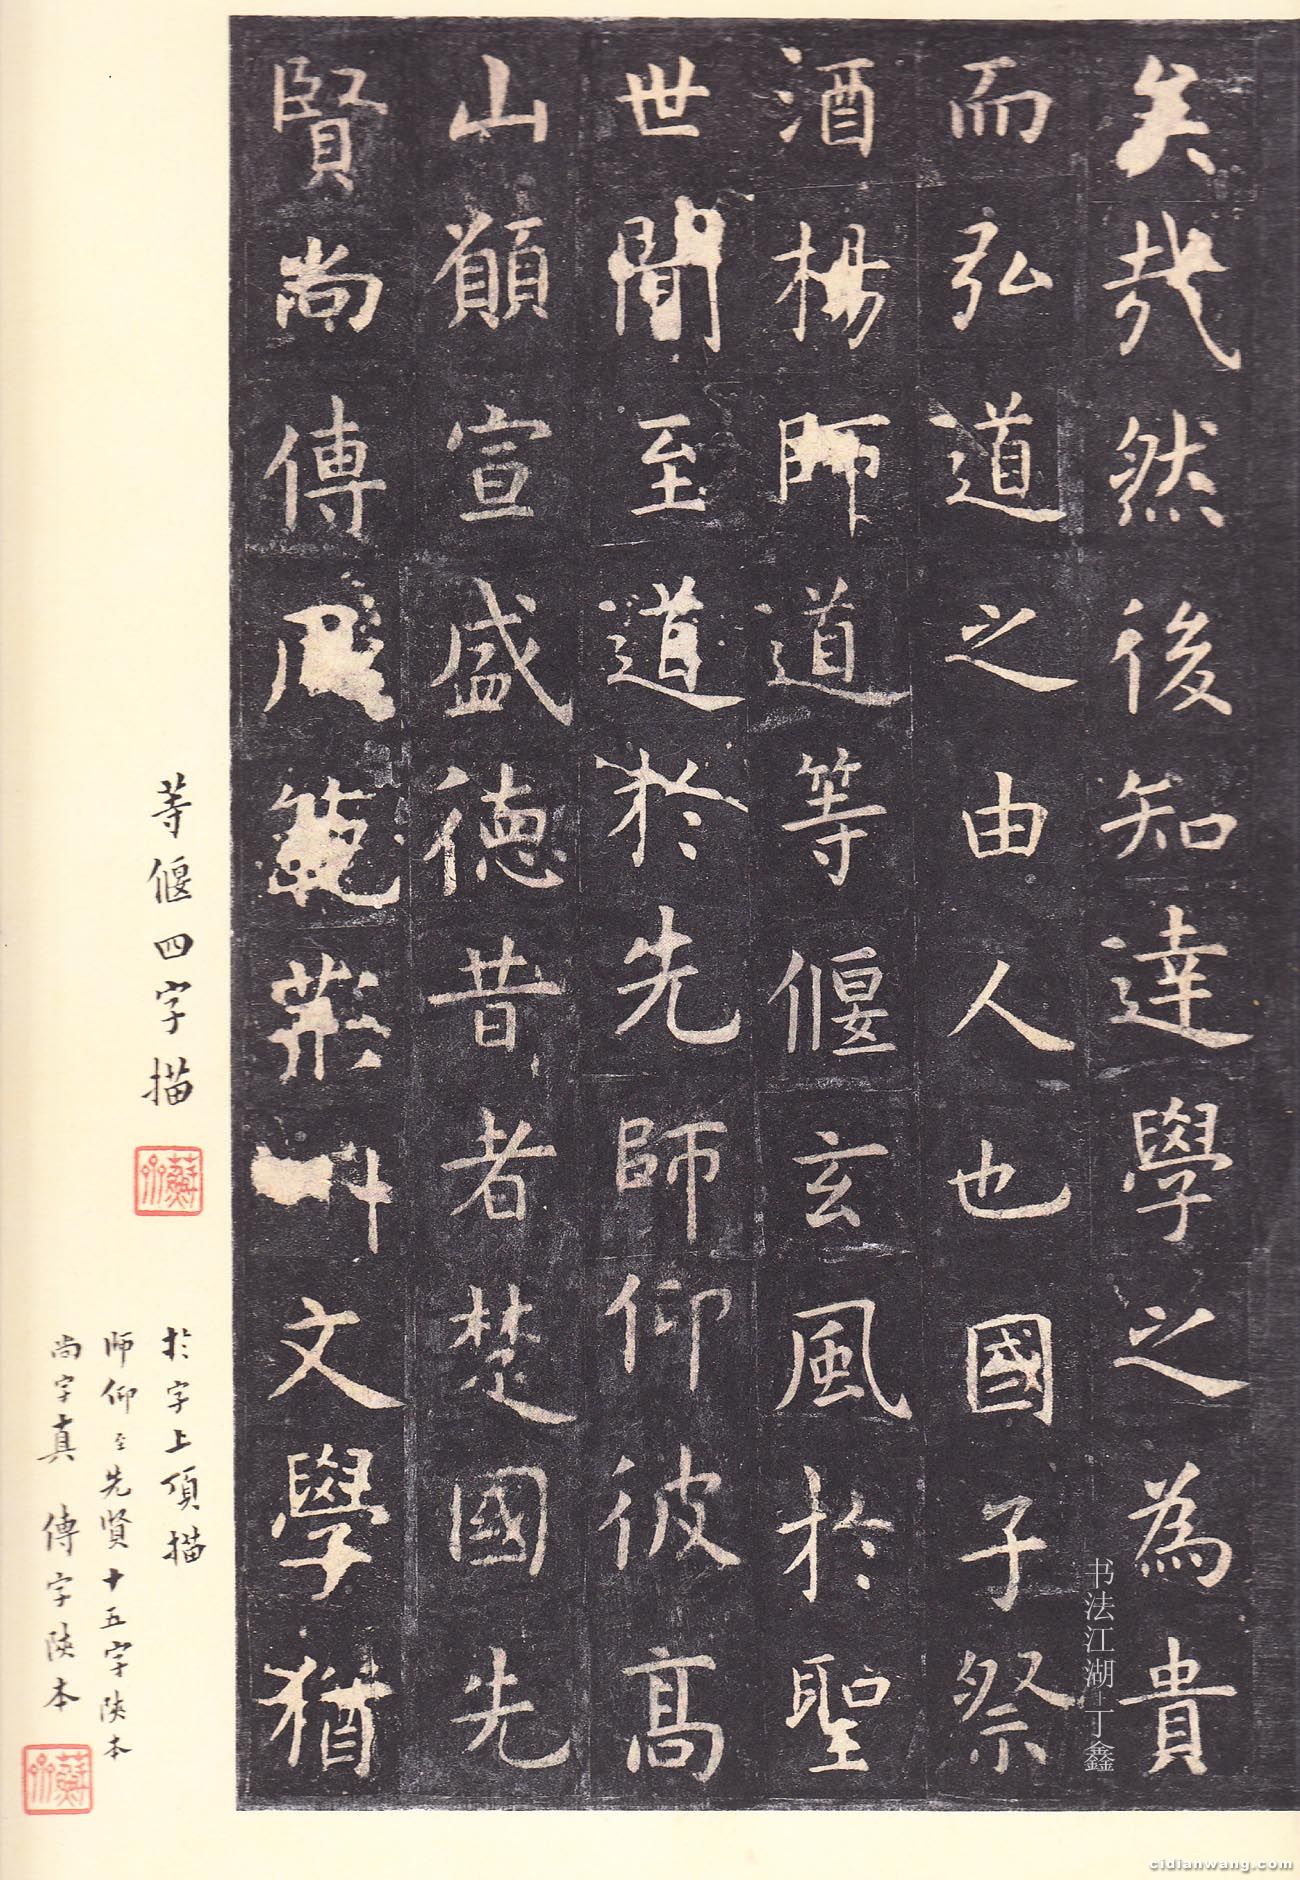 矣哉然後知達學之為貴
而弘道之由人也國子祭
酒楊師道等偃玄風於聖
世聞至道於先師仰彼高
山願宣盛德昔者楚國先
賢尚傳風範荊州文學猶
等偃四字描
於字上頂描
師仰至先賢十五字陝本
尚字真 傳字陝本
书法江湖 丁鑫
cidianwang.com